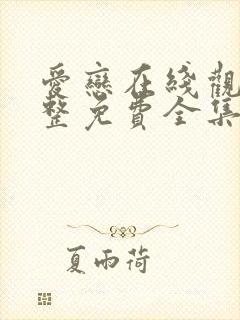 愛戀在綫觀
整免費全集
夏雨荷